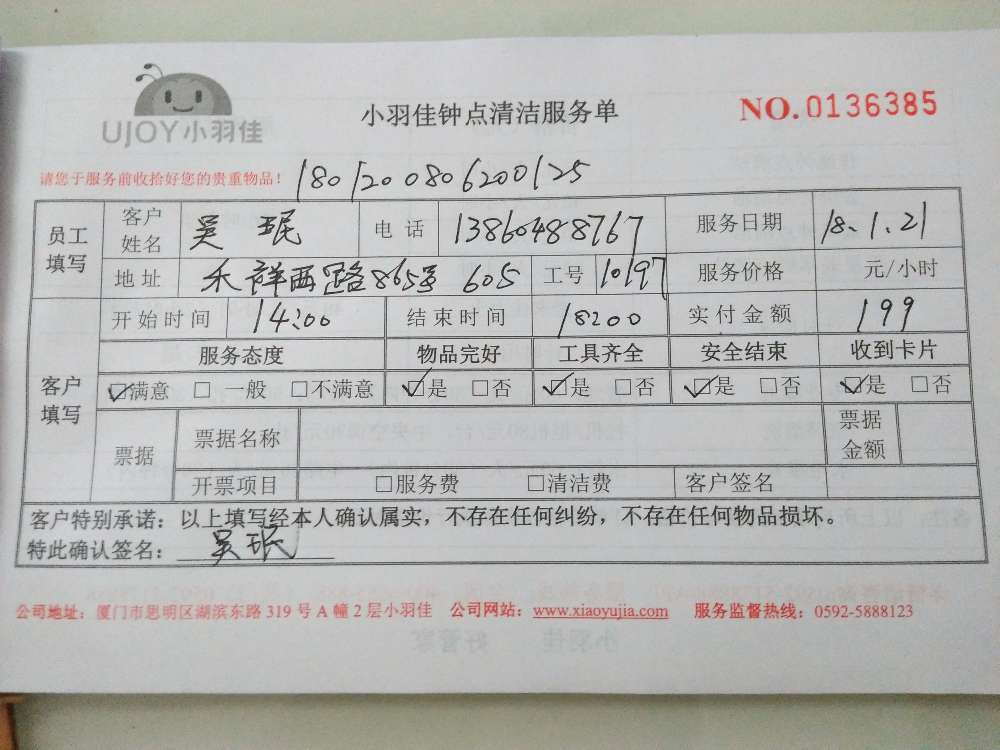 UJOY小羽佳
小羽佳钟点清洁服务单
NO.0136385
请您于服务前收拾好您的贵重物品！
1801200806200125
员工填写 客户姓名 吴珉 电话 13860488767 服务日期 18.1.21
地址 禾祥西路865号 605 工号 10197 服务价格 元/小时
客户填写 开始时间 14:00 结束时间 18:00 实付金额 199
服务态度 物品完好 工具齐全 安全结束 收到卡片
☑满意 □一般 □不满意 ☑是 □否 ☑是 □否 ☑是 □否 ☑是 □否
票据 票据名称 票据金额
开票项目 □服务费 □清洁费 客户签名
客户特别承诺：以上填写经本人确认属实，不存在任何纠纷，不存在任何物品损坏。
特此确认签名：吴珉
公司地址：厦门市思明区湖滨东路 319 号 A 幢 2 层小羽佳 公司网站：www.xiaoyujia.com 服务监督热线：0592-5888123